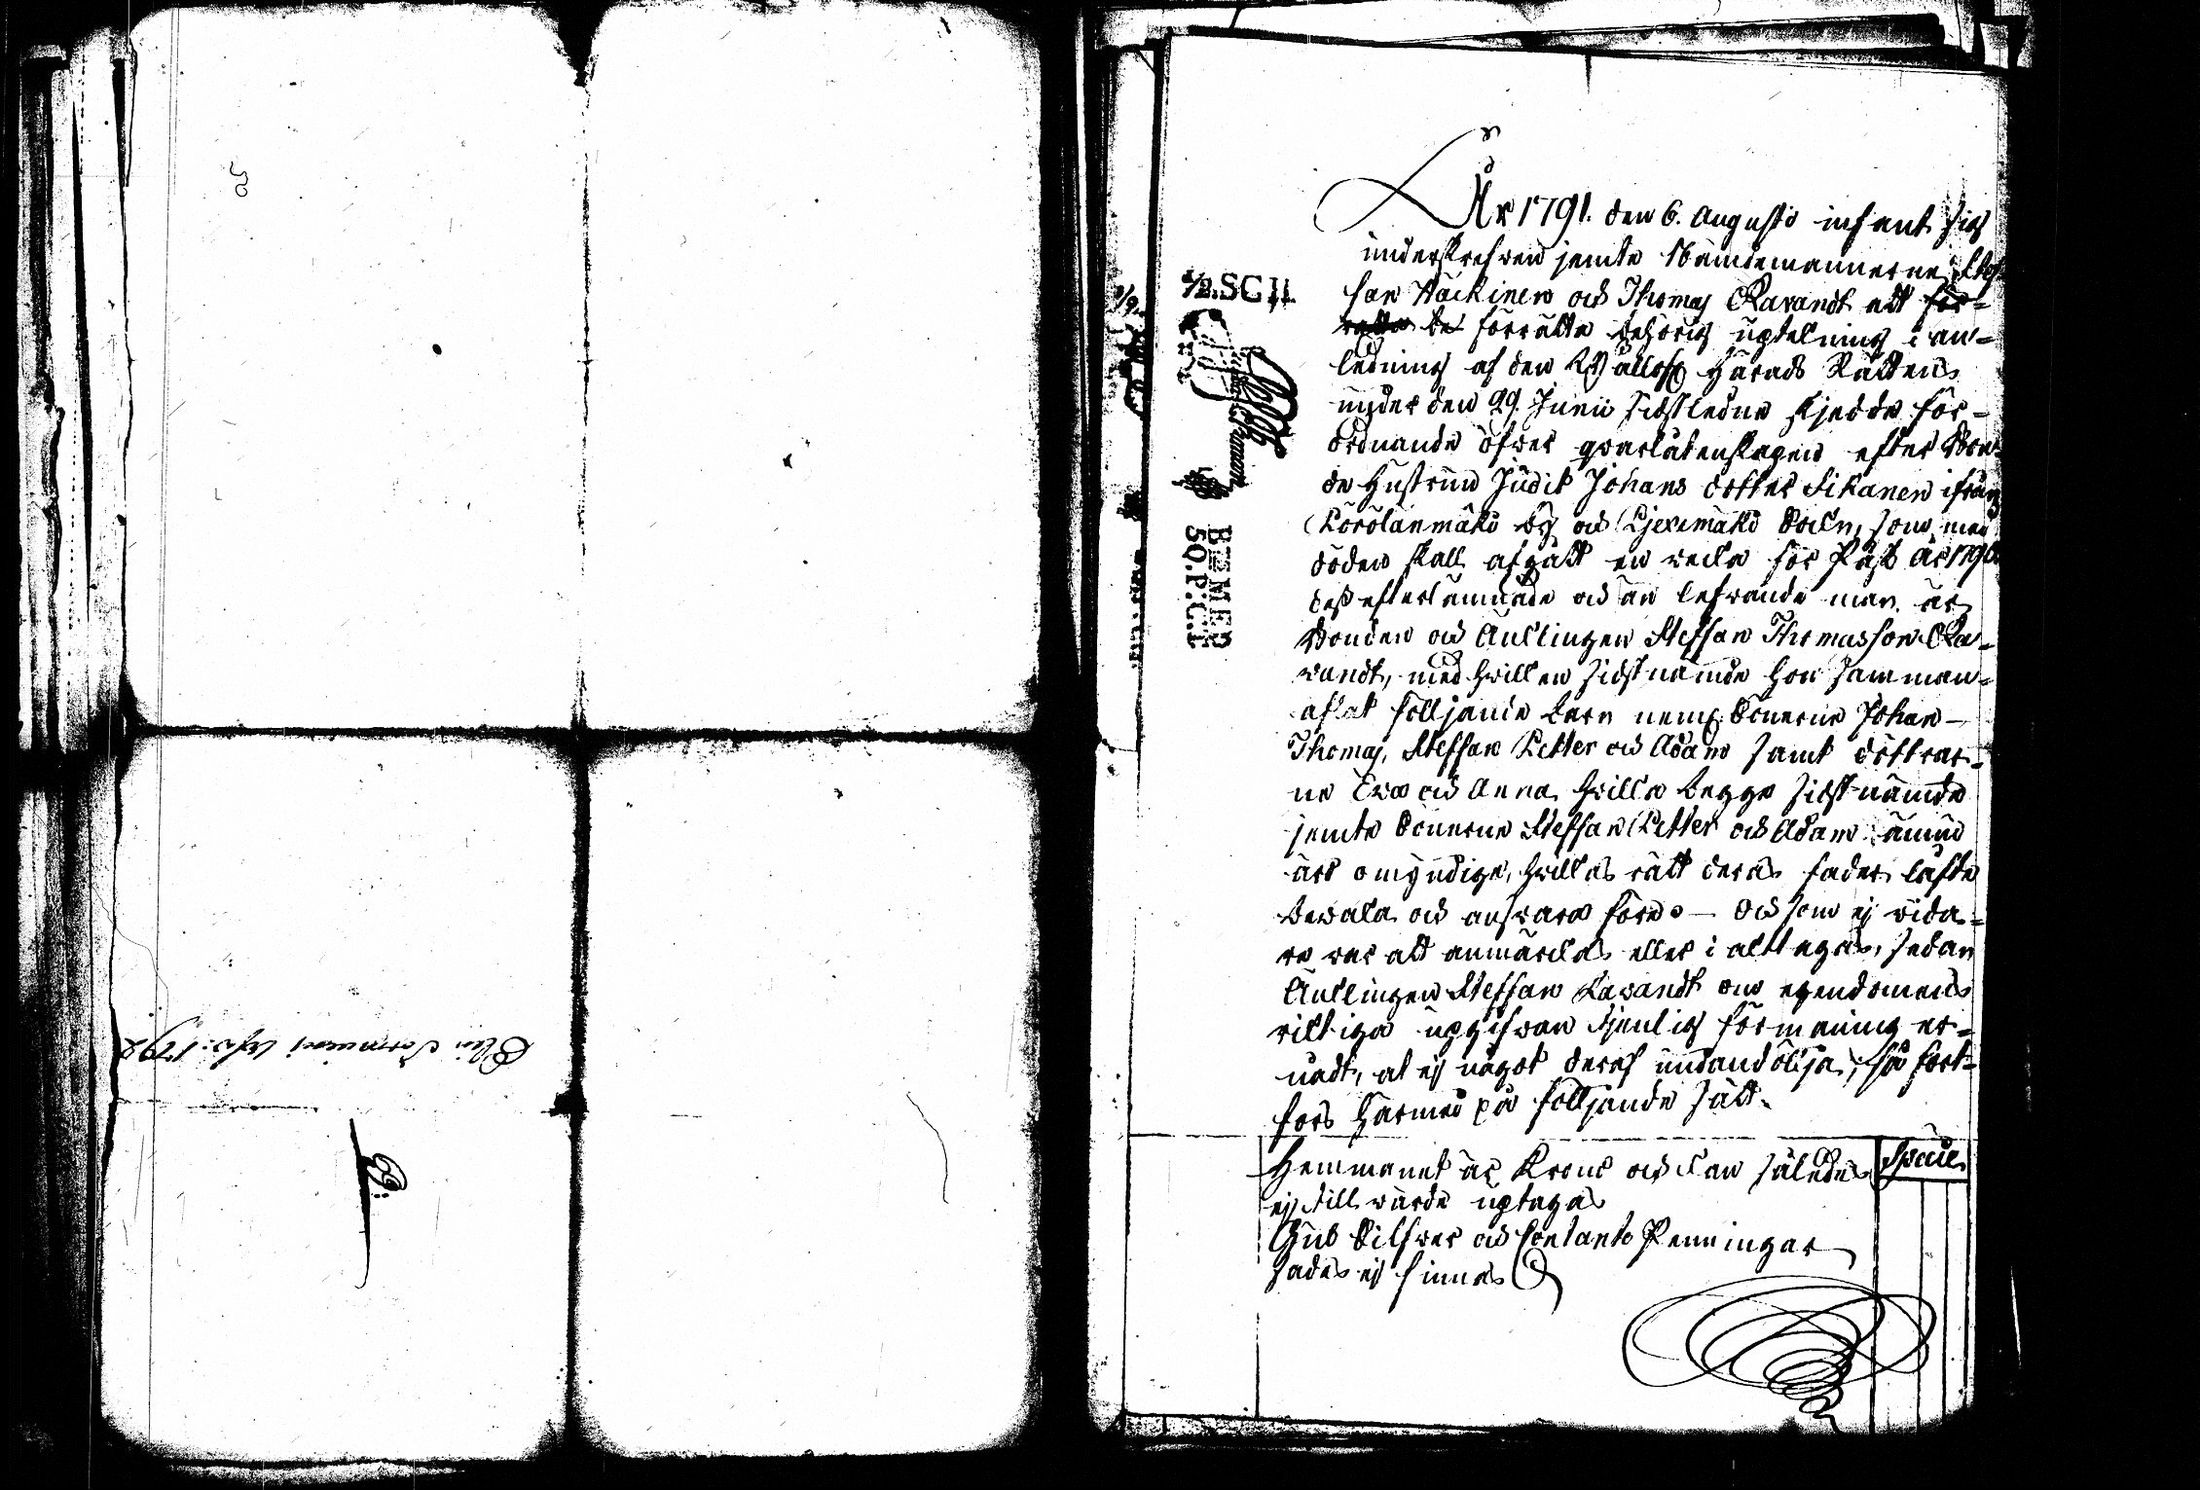 År 1791. den 6. Augusti infant sig
underskrefwen jemte Nämdemännerne Stef
fan Häckinen och Thomas Ravandt att för-
rätta be förrätta behörig upteckning i an-
ledning af den Wällofl Härads Rättens
under den 29. Junii sidstledne skjedde för-
ordnande öfwer qwarlåtenskapen efter Bon-
de Hustrun Judit Johans dotter Sikanen ifrån
by och Sockn, som med
döden skall afgått en wecka för Påsk år 1790
dess efterlämnade och än lefwande man är
Bonden och Änklingen Steffan Thomasson Ra-
vandt, med hwilken sidstnämde hon samman-
aflat följande barn neml: Sönerne Johan
Thomas, Steffan Petter och Adam samt döttrar-
ne Ewa och Anna hwilka begge sidstnämde
jemte Sönerne Steffan Petter och Adam ännu
äro omyndige, hwilkas rätt deras fader låfte
bewaka och answara före - Och som ej wida-
re war att anmärckas eller i akttagas, sedan
Änklingen Steffan Ravandt om egendomens
riktiga uppgifwan tjenlig förmaning er-
nådt, at ej något deraf undandölja; så fort-
fors härmed på följande sätt.
Hemmanet är Krono och kan således
ej till wärde uptagas
Specie
Guld Silfwer och Contante Penningar
sades ej finnas
1/2. SC II.
5Ö.P:C.T
1792